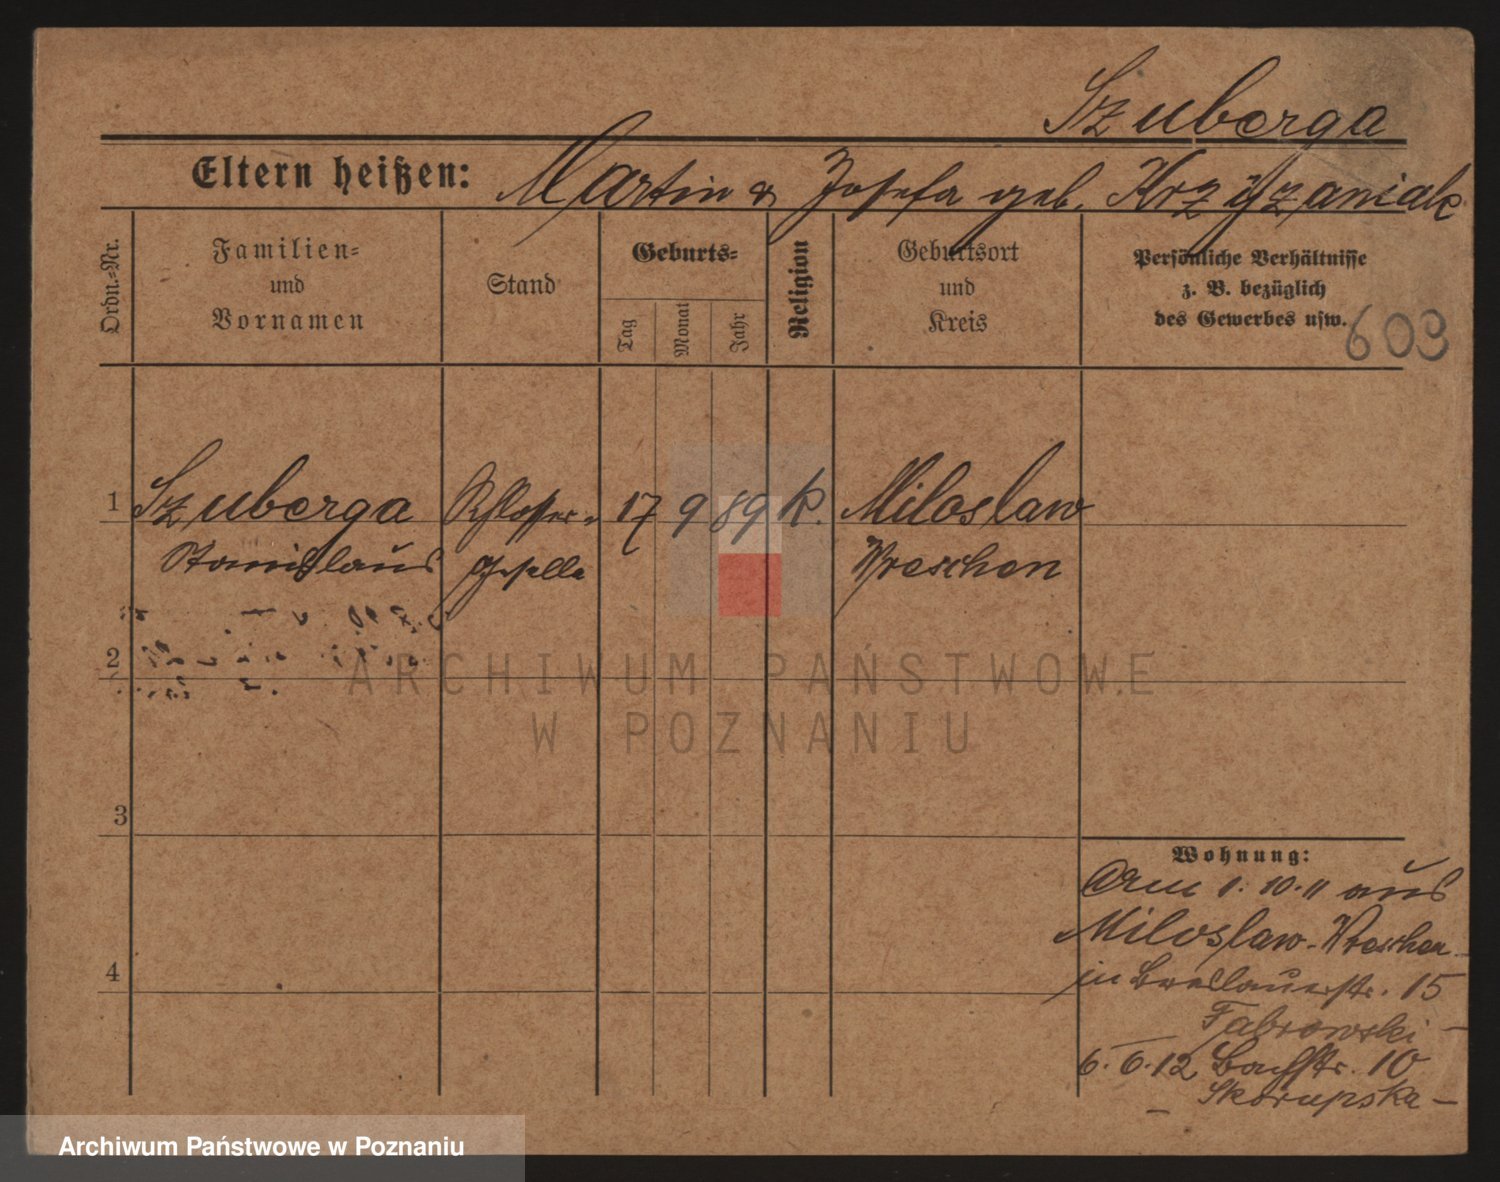 Szuberga
Eltern heißen: Martin & Josefa geb. Krzyzaniak
Ordn.-Nr.
Familien-
und
Vornamen
Stand
Geburts-
Tag
Monat
Jahr
Religion
Geburtsort
und
Kreis
Persönliche Verhältnisse
z. B. bezüglich
des Gewerbes usw.
609
1 Szuberga Schlosser- 17 9 89 k. Miloslaw
Stanislaus geselle Wreschen
2
3
4
Wohnung:
Am 1.10.11 aus
Miloslaw-Wreschen
in Breslauerstr. 15
Fabrowski -
6.6.12 Bachstr. 10
- Skorupska -
ARCHIWUM PAŃSTWOWE
W POZNANIU
Archiwum Państwowe w Poznaniu